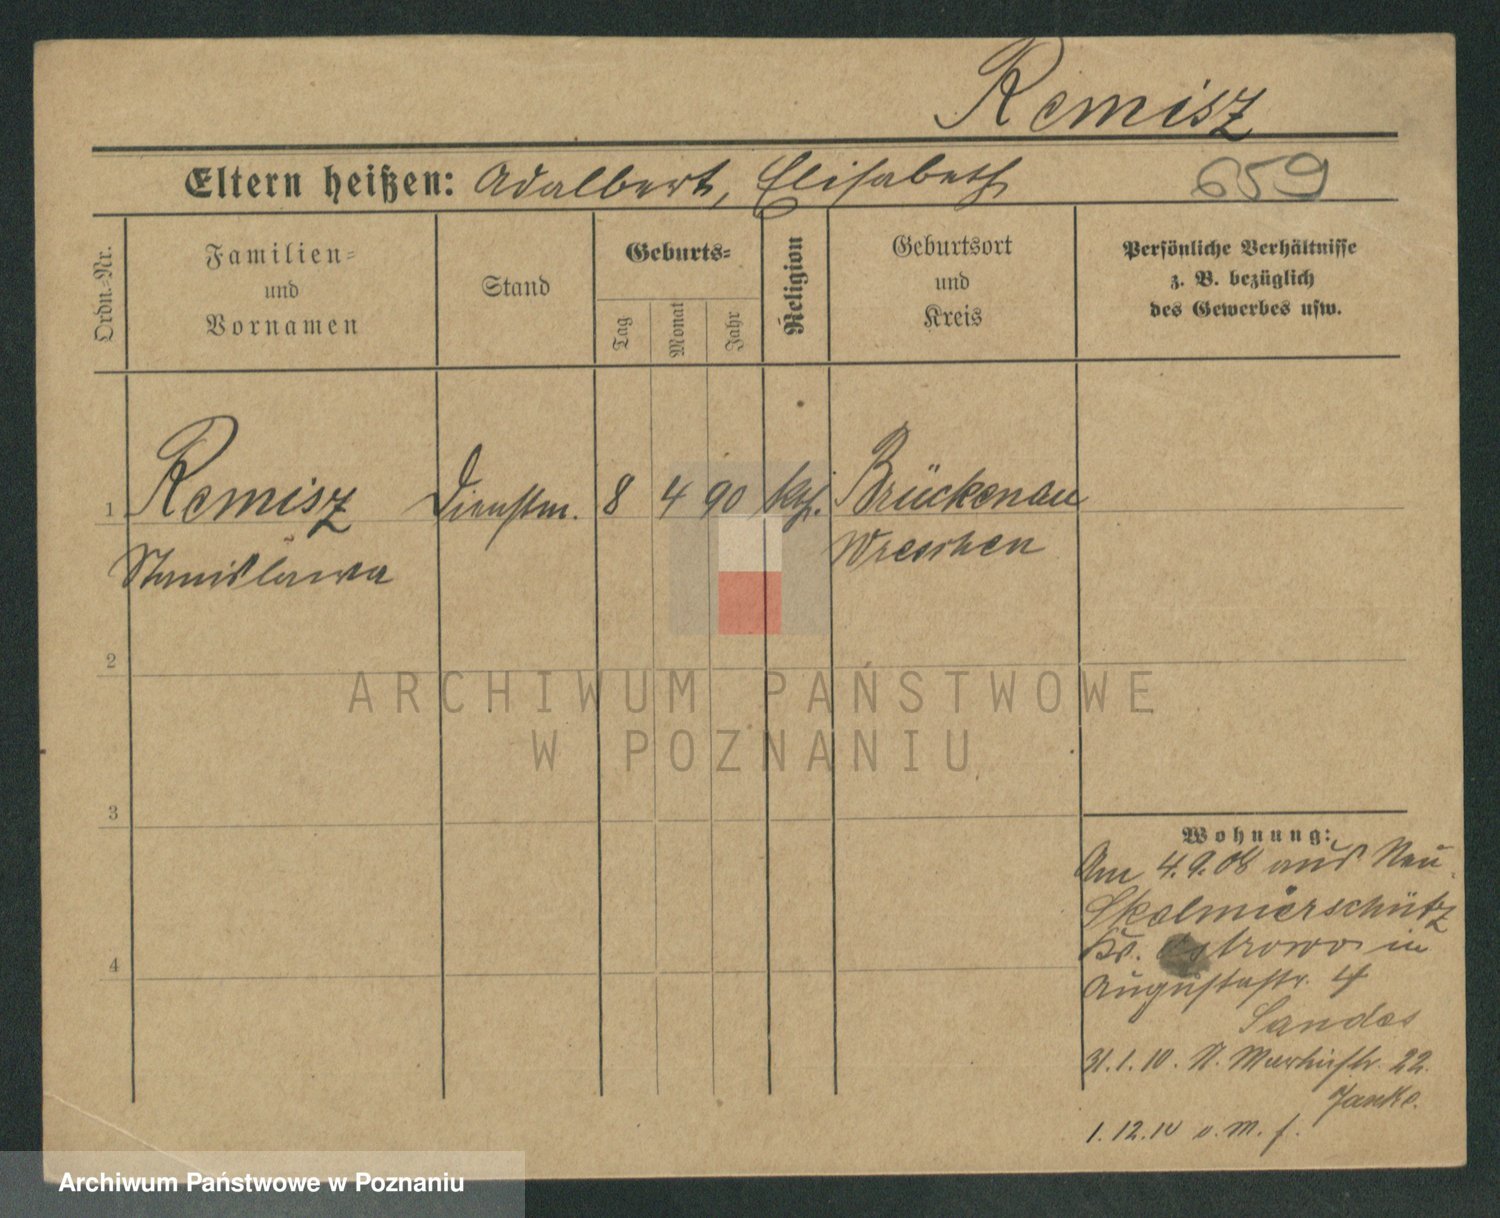 Remisz
Eltern heißen: Adalbert, Elisabeth
659
Ordn.-Nr.
Familien-
und
Vornamen
Stand
Geburts-
Tag
Monat
Jahr
Religion
Geburtsort
und
Kreis
Persönliche Verhältnisse
z. B. bezüglich
des Gewerbes usw.
1 Remisz Dienstm. 8 4 90 kth. Brückenau
Stanislawa Wreschen
2
3
4
Wohnung:
Am 4.9.08 aus Neu
Skalmierschütz
Kr. Ostrowo in
Augustastr. 4
Sandes
31.1.10. N. 22.
1.12.10 o. M. f.
ARCHIWUM PAŃSTWOWE
W POZNANIU
Archiwum Państwowe w Poznaniu